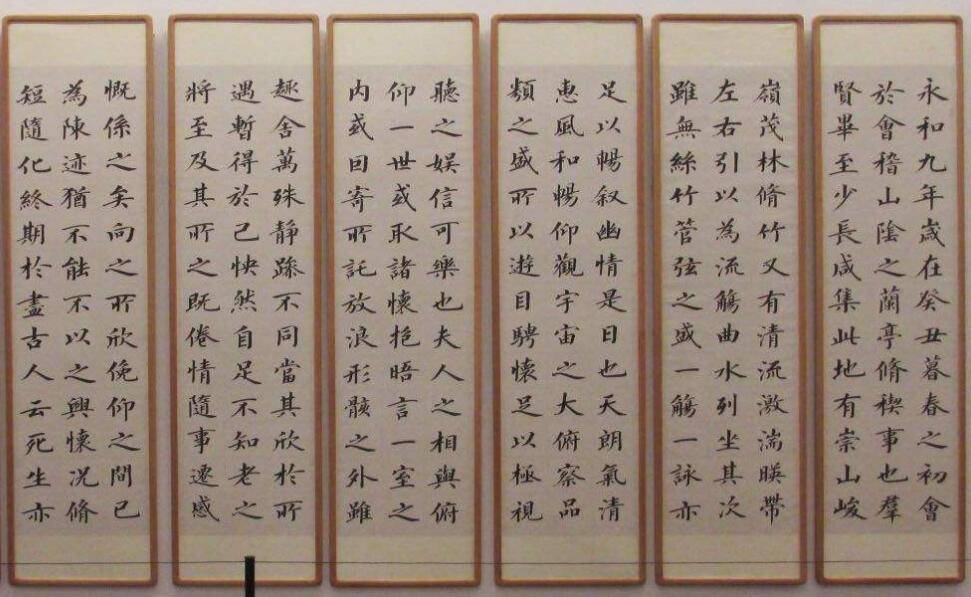 永和九年歲在癸丑暮春之初會
於會稽山陰之蘭亭脩稧事也羣
賢畢至少長咸集此地有崇山峻
嶺茂林脩竹又有清流激湍暎帶
左右引以為流觴曲水列坐其次
雖無絲竹管弦之盛一觴一詠亦
足以暢叙幽情是日也天朗氣清
惠風和暢仰觀宇宙之大俯察品
類之盛所以遊目騁懷足以極視
聽之娛信可樂也夫人之相與俯
仰一世或取諸懷抱晤言一室之
内或因寄所託放浪形骸之外雖
趣舍萬殊静躁不同當其欣於所
遇暫得於己快然自足不知老之
將至及其所之既倦情隨事遷感
慨係之矣向之所欣俛仰之間已
為陳迹猶不能不以之興懷況脩
短隨化終期於盡古人云死生亦